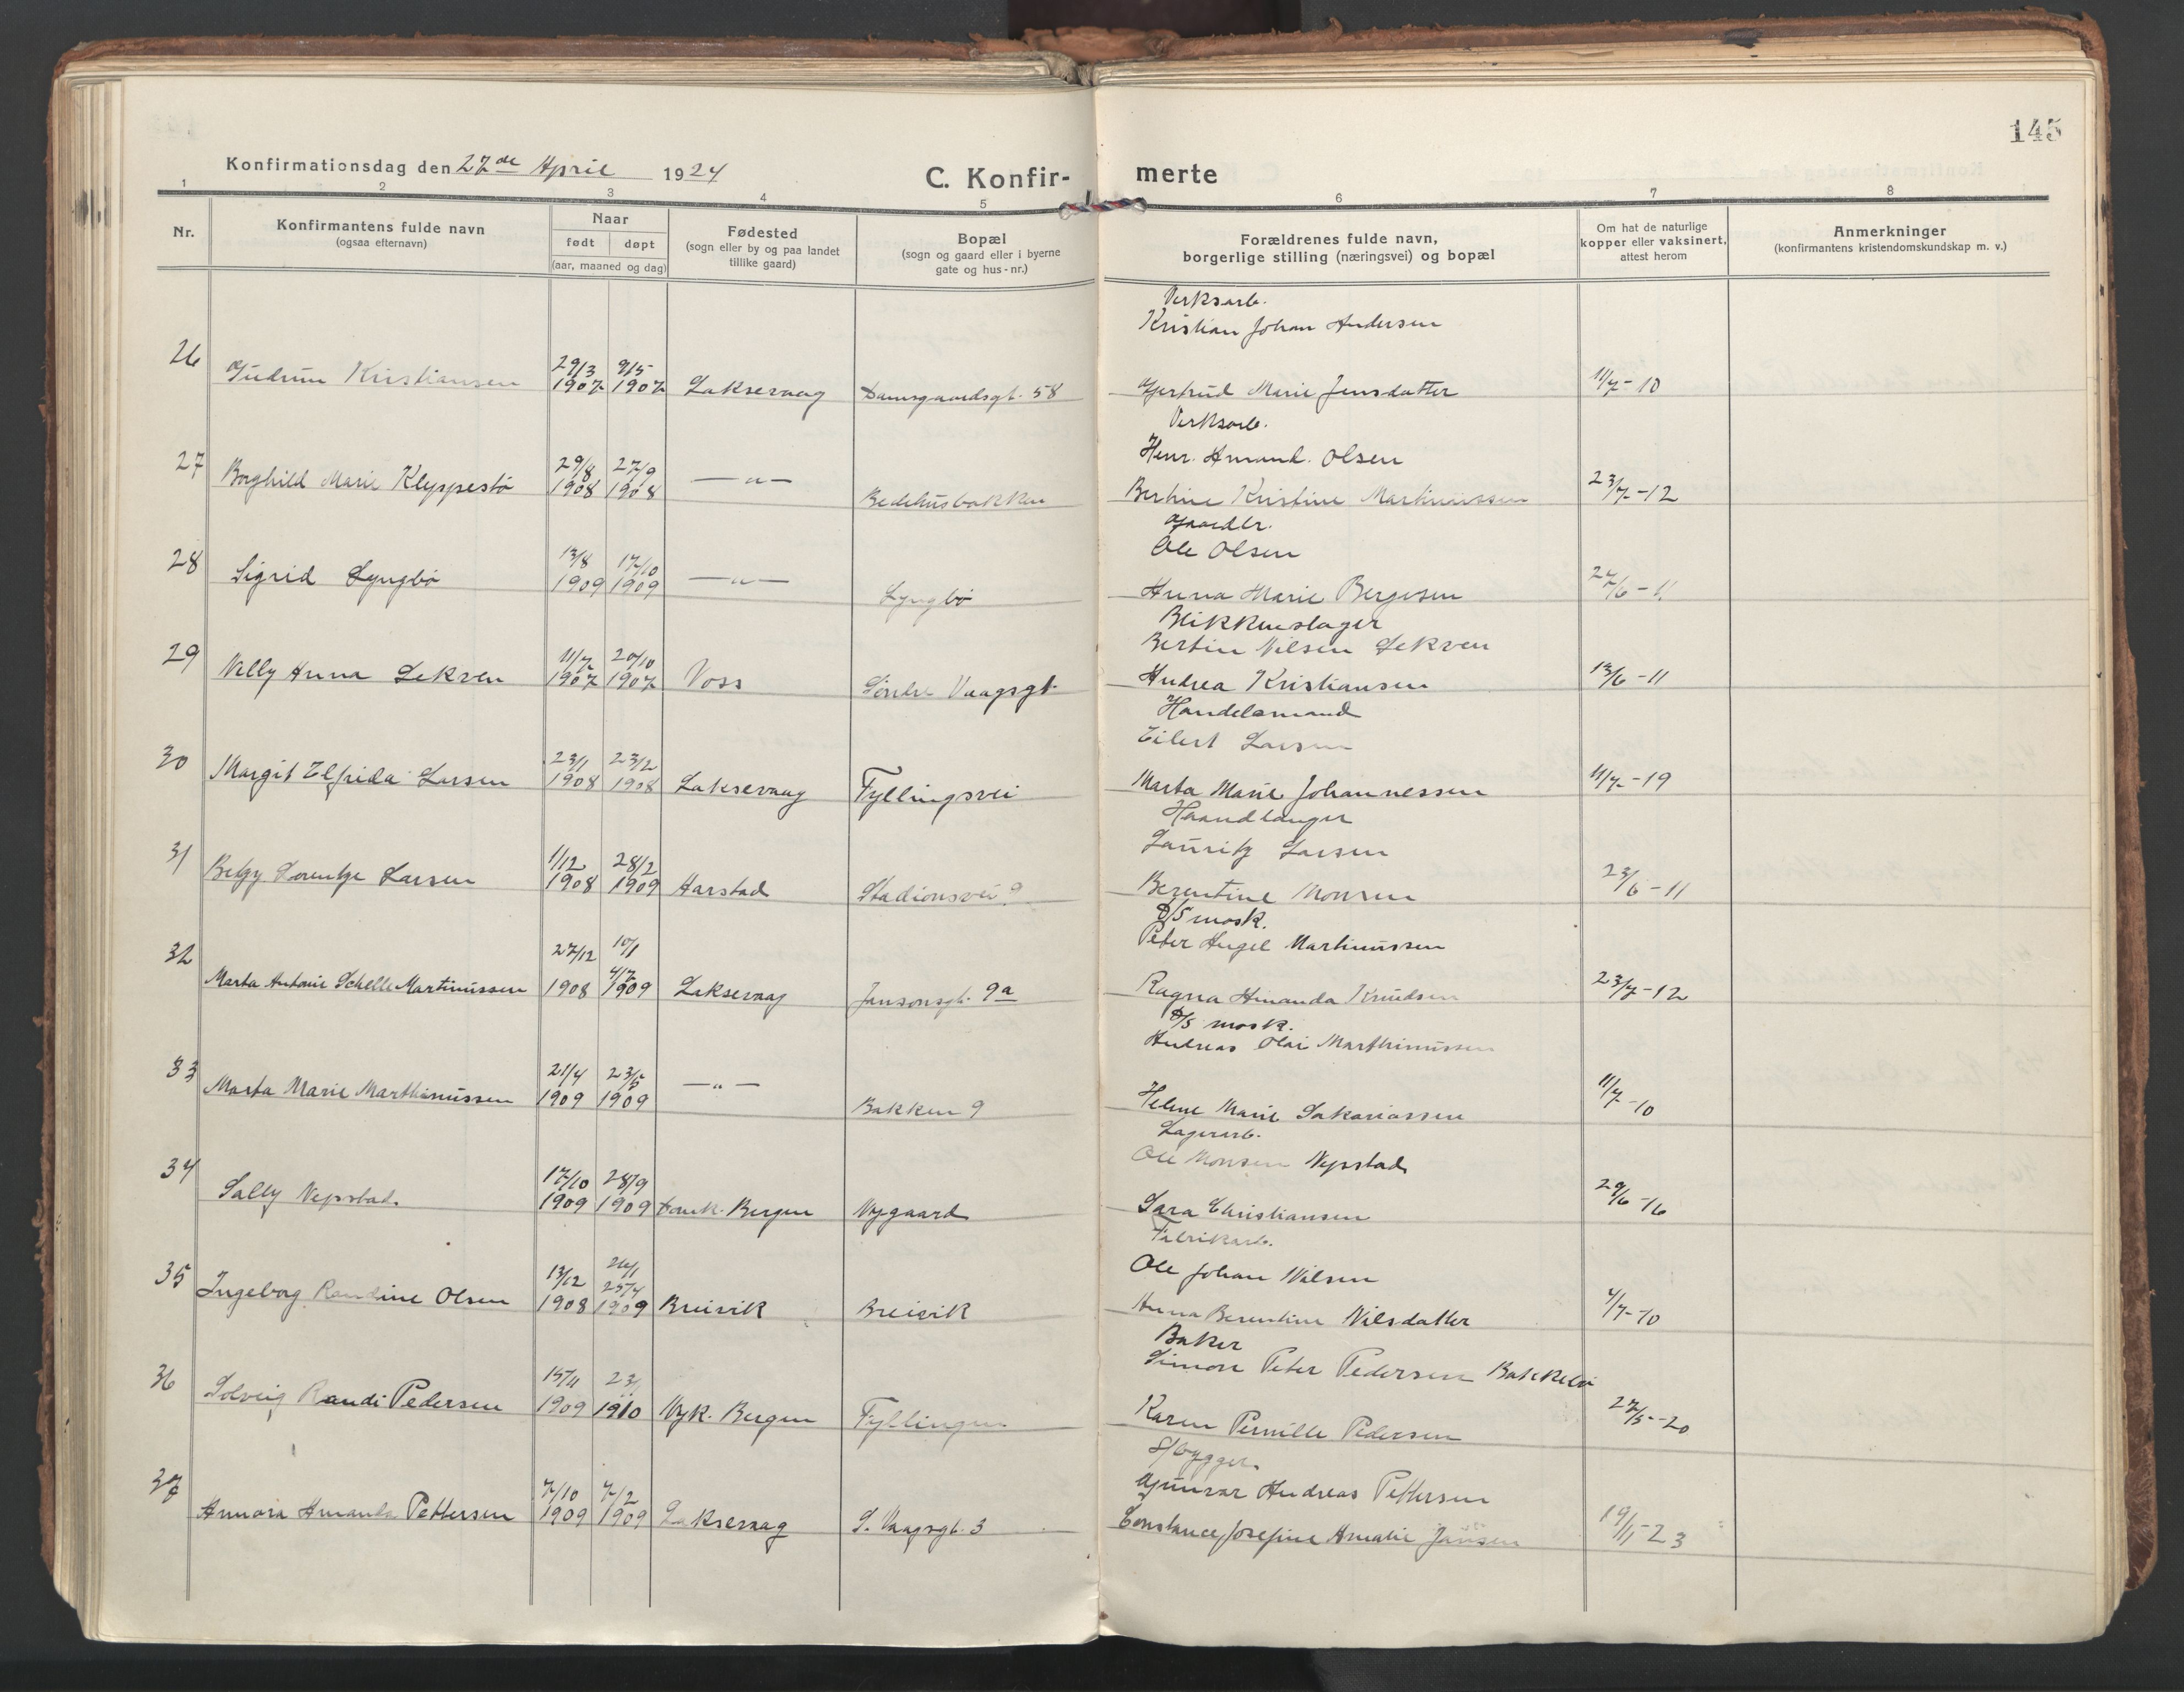 145
Konfirmationsdag den 27de April 1924
C. Konfir- merte
1 2 3 4 5 6 7 8
Nr.
Konfirmantens fulde navn
(ogsaa efternavn)
Naar
født døpt
(aar, maaned og dag)
Fødested
(sogn eller by og paa landet
tillike gaard)
Bopæl
(sogn og gaard eller i byerne
gate og hus-nr.)
Forældrenes fulde navn,
borgerlige stilling (næringsvei) og bopæl
Om hat de naturlige
kopper eller vaksinert,
attest herom
Anmerkninger
(konfirmantens kristendomskundskap m. v.)
Verksarb.
Kristian Johan Andersen
26 Gudrun Kristiansen 29/3 1907 9/5 1907 Laksevaag Damsgaardsgt. 58 Gjertrud Marie Jensdatter 11/7-10
Verksarb.
Henr. Amand. Olsen
27 Borghild Marie Kleppestø 29/8 1908 27/9 1908 —„— Bedehusbakken Bertine Kristine Martinussen 23/7-12
Gaardbr.
Ole Olsen
28 Sigrid Lyngbø 13/8 1909 17/10 1909 —„— Lyngbø Anna Marie Bergesen 27/6-11
Blikkenslager
Bertin Nilsen Lekven
29 Nelly Anna Lekven 11/7 1907 20/10 1907 Voss Søndre Vaagsgt. Andrea Kristiansen 13/6-11
Handelsmand
Eilert Larsen
30 Margit Elfrida Larsen 23/1 1908 23/2 1908 Laksevaag Fyllingsvei Marta Marie Johannessen 11/7-19
Haandlanger
Lauritz Larsen
31 Betzy Lorentze Larsen 1/12 1908 28/2 1909 Aarstad Stadionsvei 9 Berentine Monsen 23/6-11
D/S mask.
Peter Angel Martinussen
32 Marta Antonie Schelle Martinussen 27/12 1908 10/1 4/7 1909 Laksevaag Jansonsgt. 9a Ragna Amanda Knudsen 23/7-12
D/S mask.
Andreas Olai Marthinussen
33 Marta Marie Marthinussen 21/4 1909 23/5 1909 —„— Bakken 9 Helene Marie Sakariassen 11/7-10
Lagerarb.
Ole Monsen Vepstad
34 Sally Vepstad 17/10 1909 28/9 1909 Domk. Bergen Nygaard Sara Christiansen 29/6-16
Fabrikarb.
Ole Johan Nilsen
35 Ingeborg Randine Olsen 13/12 1908 24/1 25/4 1909 Breivik Breivik Anna Berentine Nilsdatter 4/7-10
Baker
Simon Peter Pedersen Bakkebø
36 Solveig Randi Pedersen 15/11 1909 23/1 1910 Nyk. Bergen Fyllingen Karen Pernille Pedersen 27/5-20
S/bygger.
Gunvar Andreas Pettersen
37 Annora Amanda Pettersen 7/10 1909 7/2 1909 Laksevaag S. Vaagsgt. 3 Constance Josefine Amalie Jansen 19/11-23